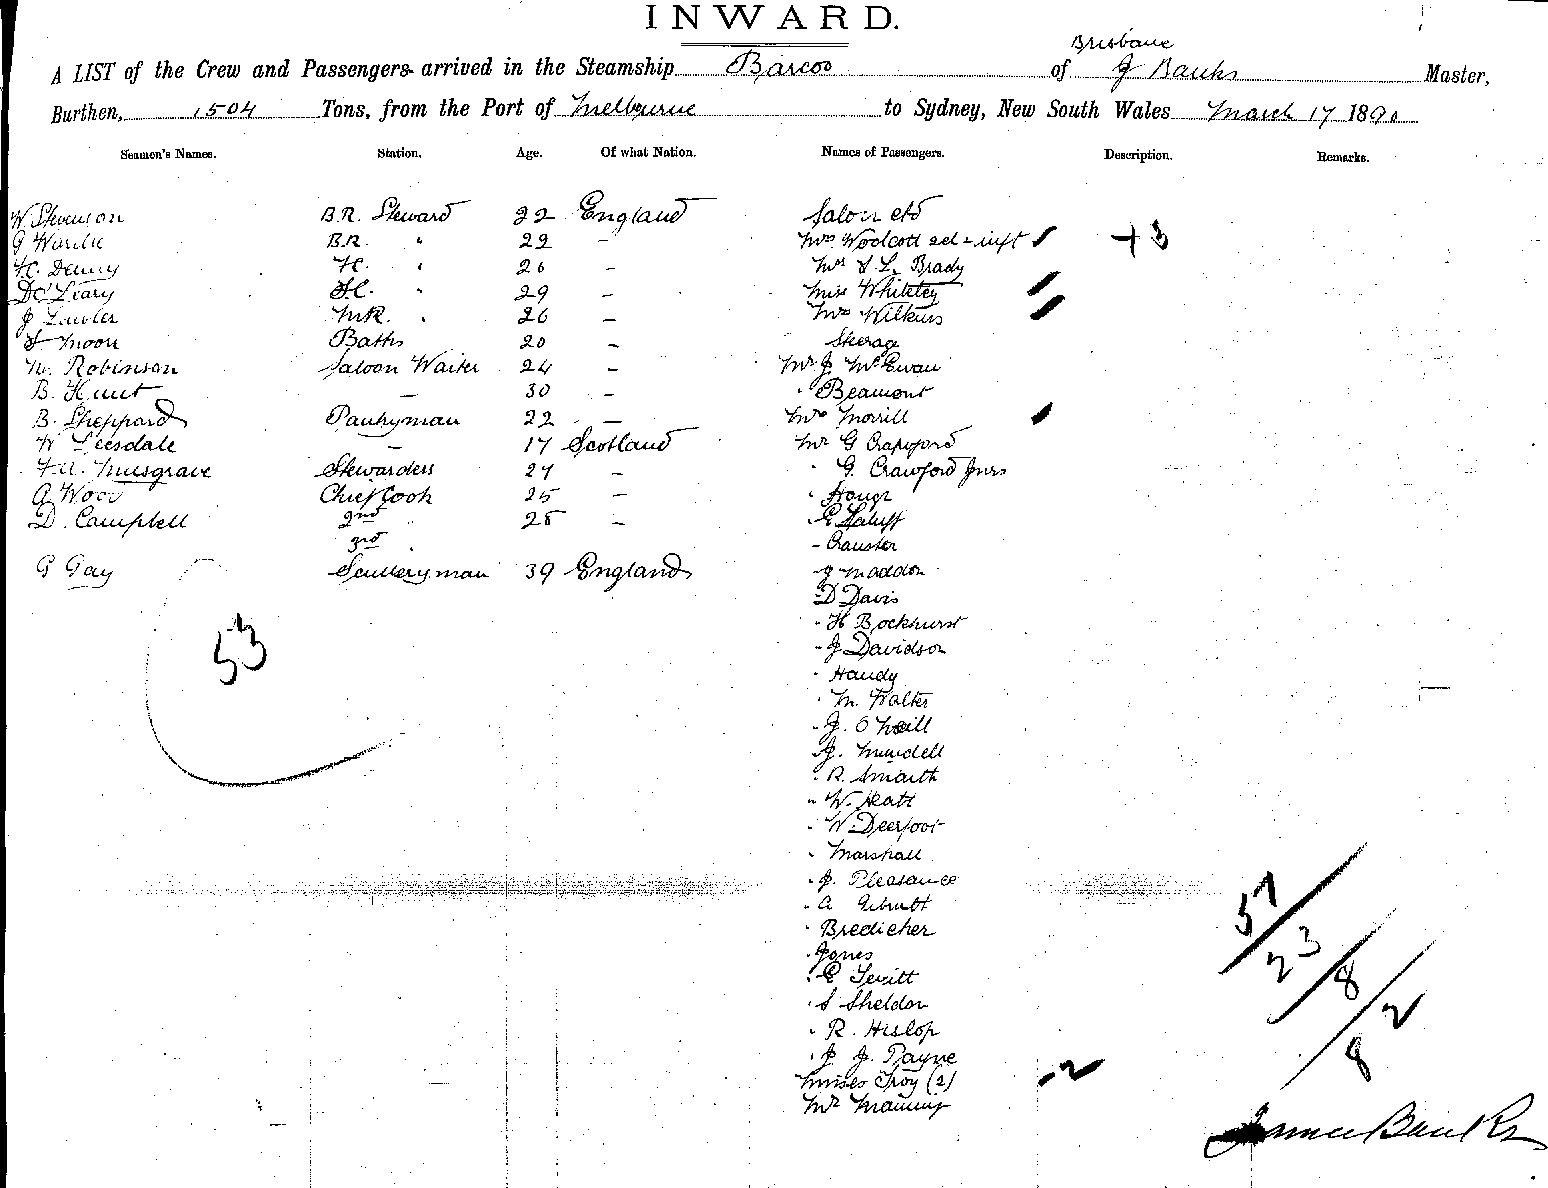 INWARD.
Brisbane
A LIST of the Crew and Passengers arrived in the Steamship Barcoo of J Banks Master,
Burthen, 1504 Tons, from the Port of Melbourne to Sydney, New South Wales March 17 1890
Seamen's Names. Station. Age. Of what Nation. Names of Passengers. Description. Remarks.
W Stevenson B.R. Steward 22 England Salon etc
G B.R. " 22 - Mrs Woolcott + 3
Denny " 26 - Mr S. L. Brady
D O'Leary " 29 - Miss Whiteley
J Lawler M.R. " 26 - Mrs Wilkins
Moon Baths 20 - Sterage
M. Robinson Saloon Waiter 24 - Mr J McEwan
B. Hunt - 30 - " Beamont
B. Sheppard Pantryman 22 - Mrs Morrill
W Leesdale - 17 Scotland Mr G Crawford
Musgrave Stewardess 27 - " G. Crawford Junr
A Wood Chief Cook 25 - "
D. Campbell 2nd " 28 - "
3rd " "
G Gay Scullery man 39 England " J Maddon
" D Davis
" H Bockhurst
53
" J Davidson
" Handy
" M. Walter
" J. O'Neill
" J. Mundell
" R. Smaith
" W. Heatt
" W. Deerfoot
" Marshall
" J. Pleasance
57
" A
" Bredicher
23
" Jones
" E Levitt
8
" S Sheldon
2
" R. Hislop
" J. J. Payne
8
Misses Troy (2) - 2
Mr Manning
James Banks